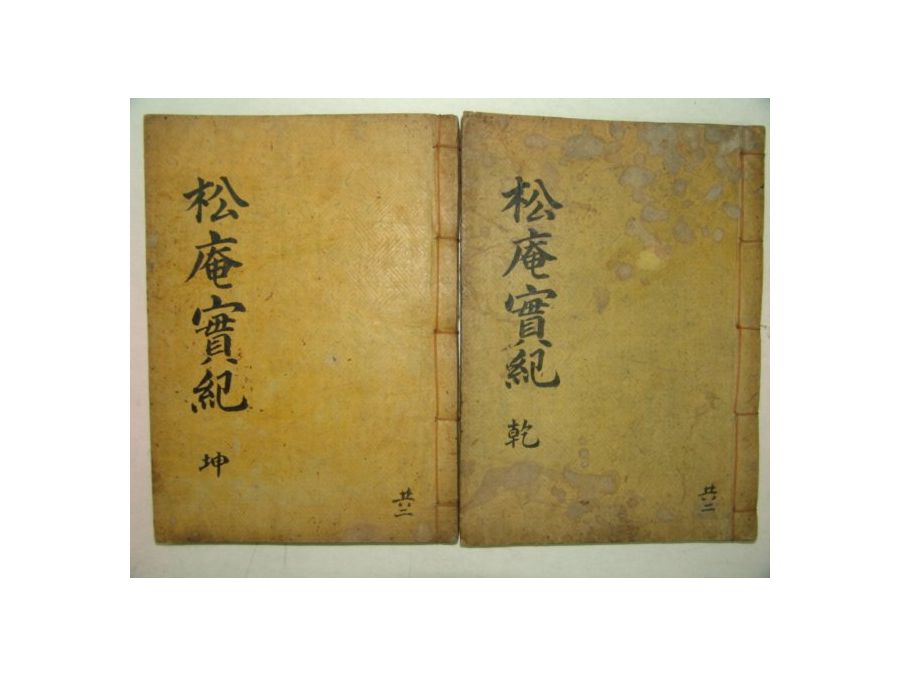 松庵實紀
乾
共二
松庵實紀
坤
共二